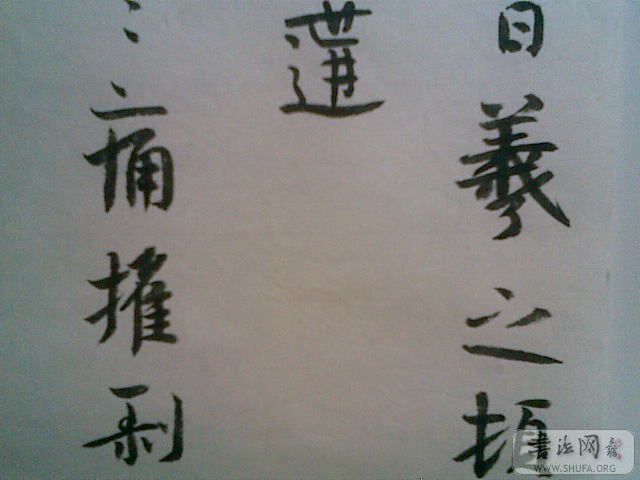 日羲之頓
遘
痛摧剥
書法网
WWW.SHUFA.ORG